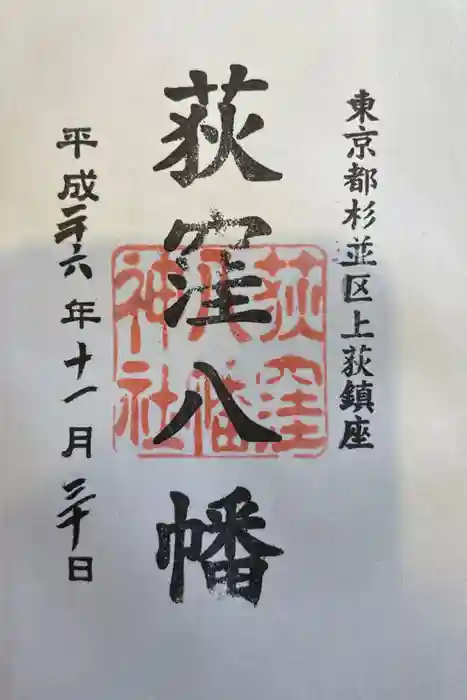 東京都杉並区上荻鎮座
荻窪八幡
荻窪
八幡
神社
平成二十六年十一月二十日